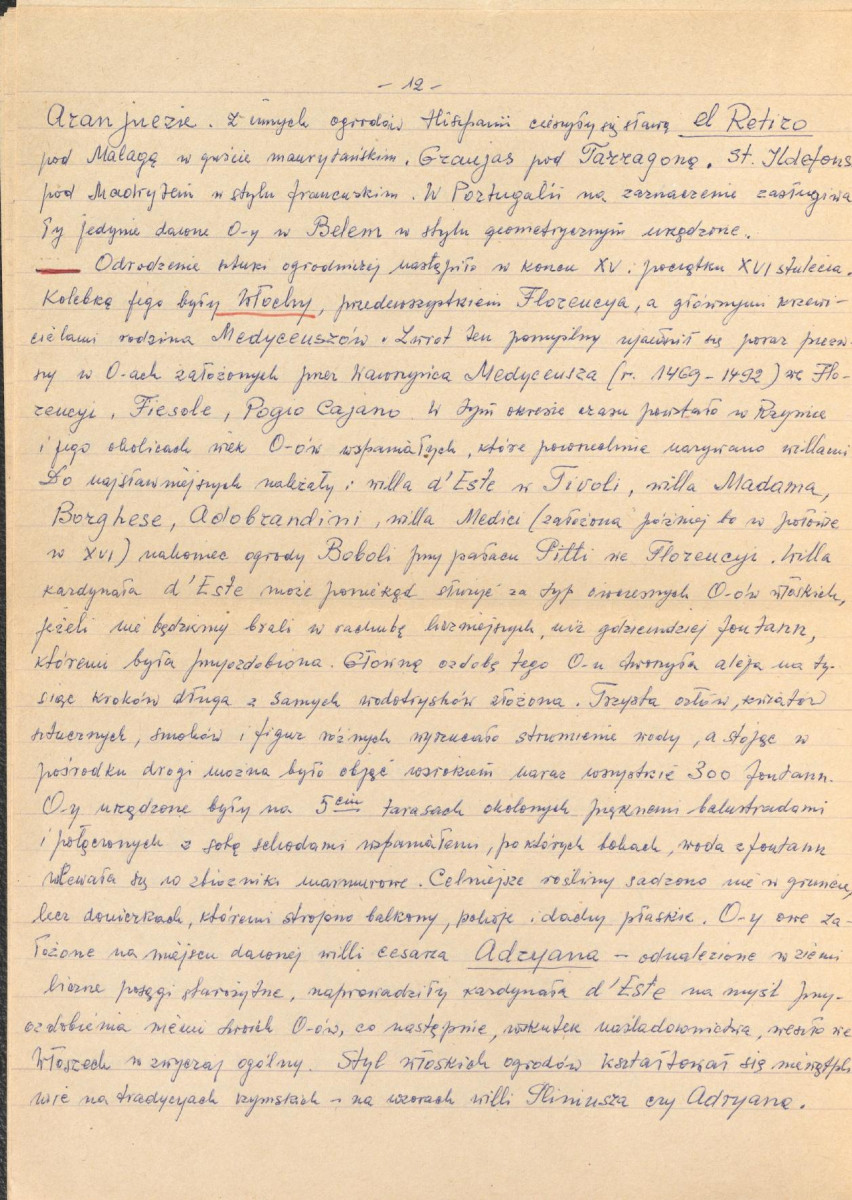 - 12 -
Aranjuezie. Z innych ogrodów Hiszpanii cieszyły się sławą el Retiro
pod Malagą w guście maurytańskim, Granjas pod Tarragoną, St. Ildefons
pod Madrytem w stylu francuskim. W Portugalii na zaznaczenie zasługiwa
ły jedynie dawne O-y w Belem w stylu geometrycznym urządzone.
Odrodzenie sztuki ogrodniczej nastąpiło w końcu XV i początku XVI stulecia.
Kolebką jego były Włochy, przedewszystkiem Florencya, a głównymi krzewi-
cielami rodzina Medyceuszów. Zwrot ten pomyślny ujawnił się poraz pierw-
szy w O-ach założonych przez Wawrzyńca Medyceusza (r. 1469-1492) we Flo-
rencyi, Fiesole, Pogio Cajano. W tym okresie czasu powstało w Rzymie
i jego okolicach wiele O-ów wspaniałych, które powszechnie nazywano willami
Do najsławniejszych należały: willa d'Este w Tivoli, willa Madama,
Borghese, Adobrandini, willa Medici (założona później bo w połowie
w XVI) nakoniec ogrody Boboli przy pałacu Pitti we Florencyi. Willa
kardynała d'Este może poniekąd służyć za typ ówczesnych O-ów włoskich,
jeżeli nie będziemy brali w rachubę liczniejszych, niż gdzieindziej fontann,
któremi była przyozdobiona. Główną ozdobę tego O-u tworzyła aleja na ty-
siąc kroków długa z samych wodotrysków złożona. Trzysta orłów, kwiatów
sztucznych, smoków i figur różnych wyrzucało strumienie wody, a stojąc w
pośrodku drogi można było objąć wzrokiem naraz wszystkie 300 fontann.
O-y urządzone były na 5ciu tarasach okolonych pięknemi balustradami
i połączonych z sobą schodami wspaniałemi, po których bokach, woda z fontann
wlewała się w zbiorniki marmurowe. Celniejsze rośliny sadzono nie w gruncie,
lecz doniczkach, któremi strojono balkony, pokoje i dachy płaskie. O-y owe za-
łożone na miejscu dawnej willi cesarza Adryana - odnalezione w ziemi
liczne posągi starożytne, naprowadziły kardynała d'Este na myśl przy-
ozdobienia niemi swoich O-ów, co następnie, wskutek naśladownictwa, weszło we
Włoszech w zwyczaj ogólny. Styl włoskich ogrodów kształtował się niewątpli
wie na tradycyach rzymskich - na wzorach willi Pliniusza czy Adryana.